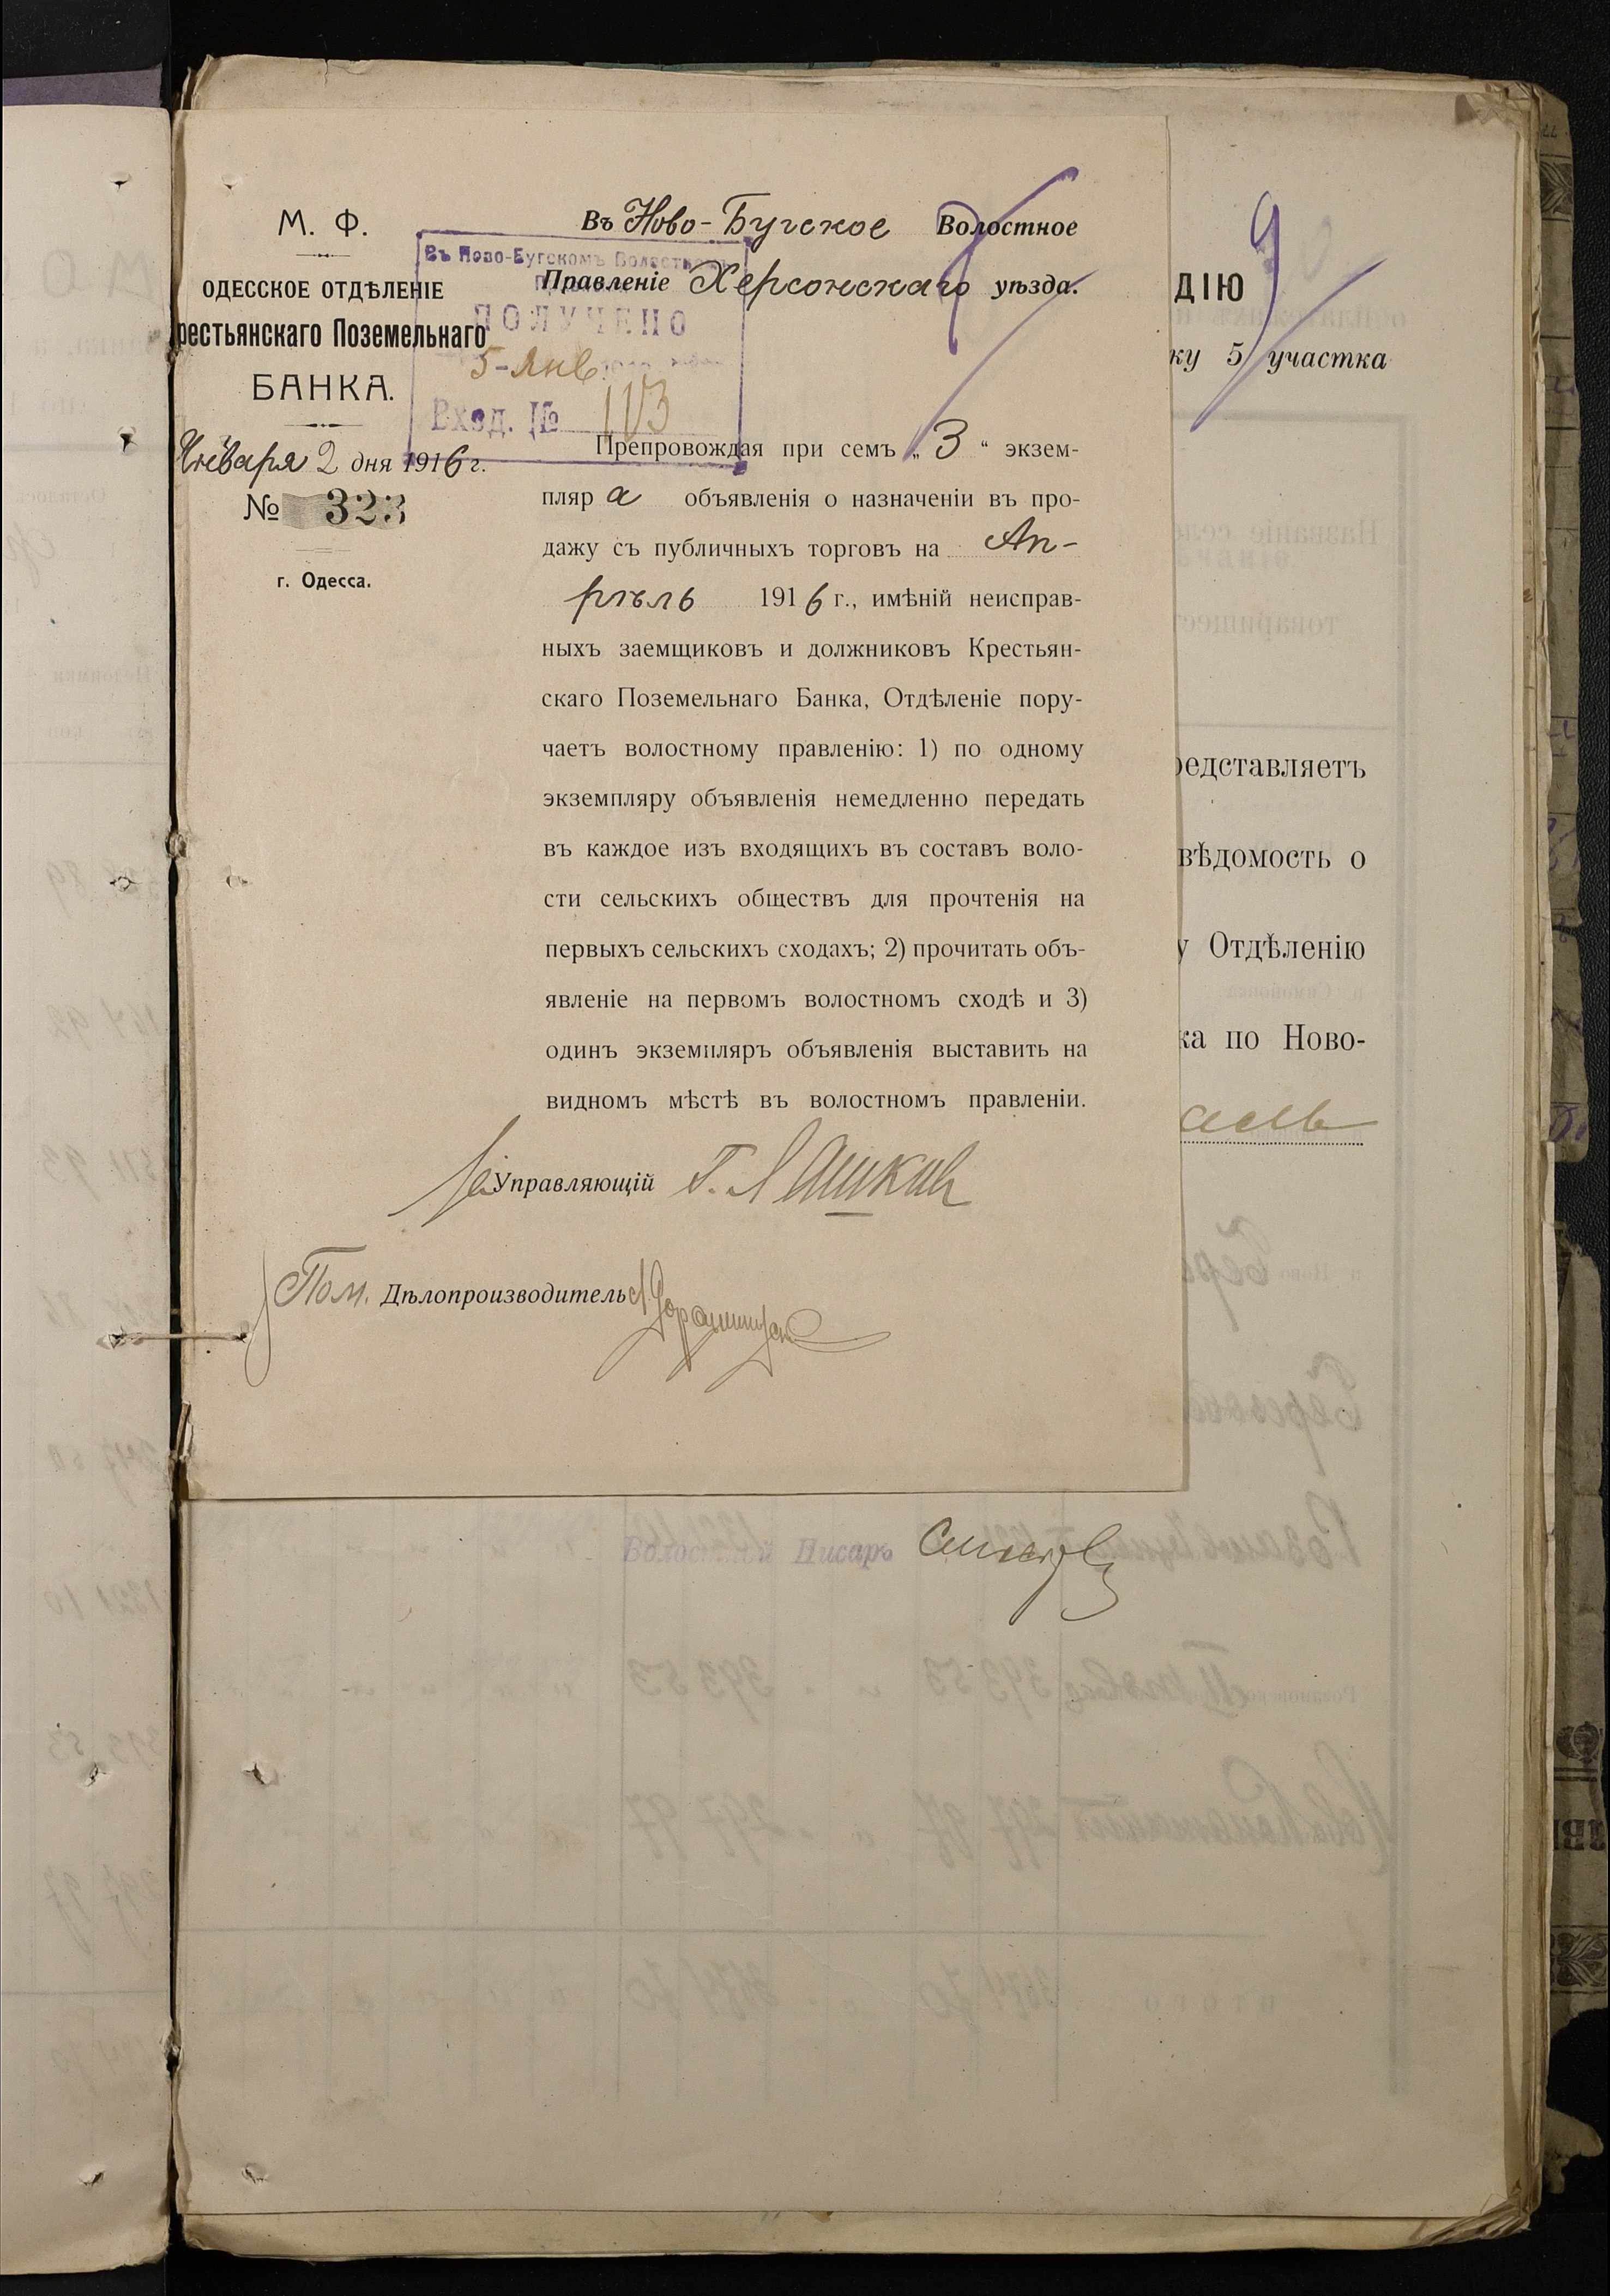 М. Ф.
ОДЕССКОЕ ОТДѢЛЕНІЕ
рестьянскаго Поземельнаго
БАНКА.
Января 2 дня 1916 г.
№ 323
г. Одесса.
Въ Ново-Бугскомъ Волостномъ
ПОЛУЧЕНО
5-Янв
Вход. №
Въ Ново-Бугское Волостное
Правленіе Херсонскаго уѣзда.
Препровождая при семъ „3“ экзем-
пляр а объявленія о назначеніи въ про-
дажу съ публичныхъ торговъ на Ап-
рѣль 1916 г., имѣній неисправ-
ныхъ заемщиковъ и должниковъ Крестьян-
скаго Поземельнаго Банка, Отдѣленіе пору-
чаетъ волостному правленію: 1) по одному
экземпляру объявленія немедленно передать
въ каждое изъ входящихъ въ составъ воло-
сти сельскихъ обществъ для прочтенія на
первыхъ сельскихъ сходахъ; 2) прочитать объ-
явленіе на первомъ волостномъ сходѣ и 3)
одинъ экземпляръ объявленія выставить на
видномъ мѣстѣ въ волостномъ правленіи.
Управляющій
Пом. Дѣлопроизводитель
9
ДІЮ
ку 5 участка
редставляетъ
вѣдомость о
у Отдѣленію
ка по Ново-
Волостной Писарь